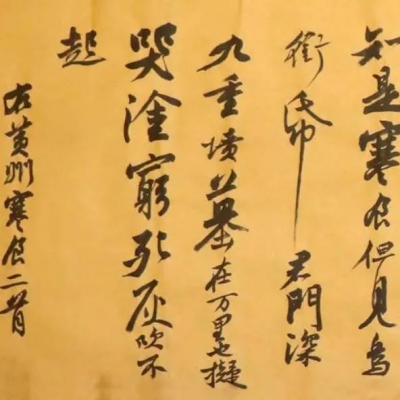 知是寒食但見烏
銜帋君門深
九重墳墓在万里也擬
哭塗窮死灰吹不
起
右黄州寒食二首